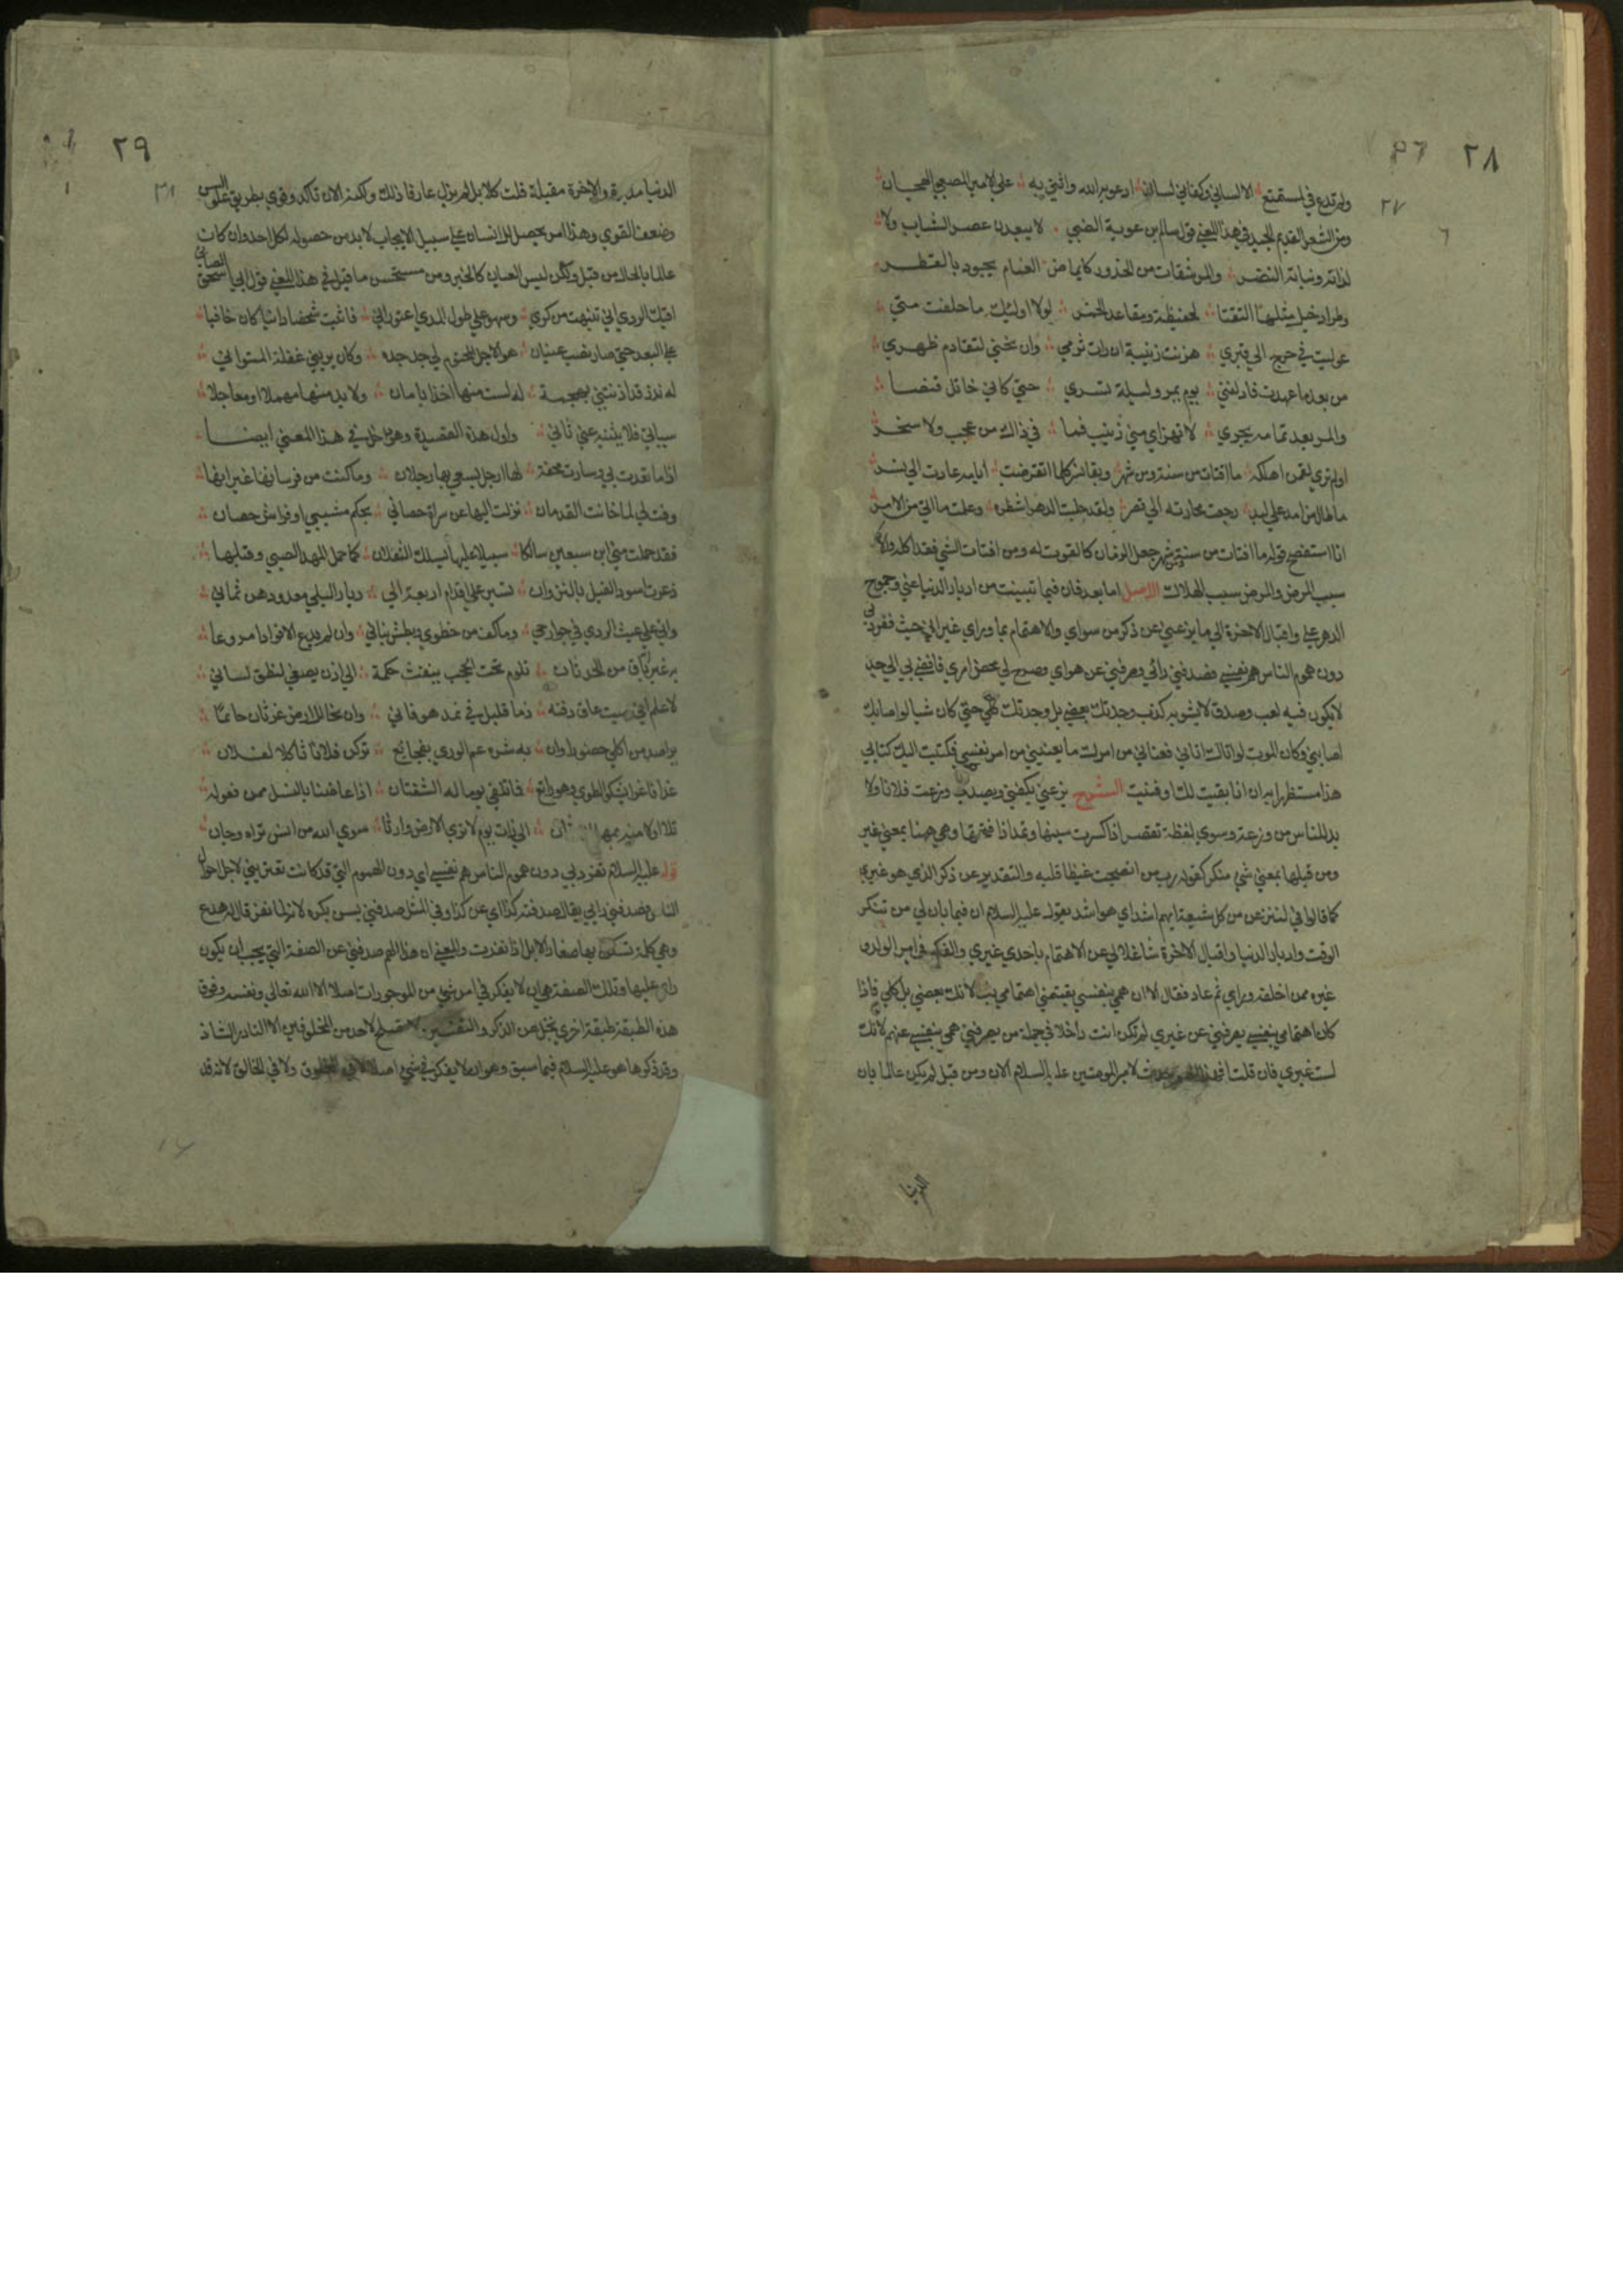 ٢٨
٢٧
ولم تدع في لمستمتع الا لساني وكفاني لسان ادعو به الله واثني به على الامير المصعبي الهجان
ومن الشعر القديم الجيد في هذا المعنى قول سالم بن عونة الضبي لا يبعدن عصر الشباب ولا
لذاته ونباته النضر والمرشقات من الخدور كايماض الغمام يجود بالقطر
وطراد خيل مثلها التقتا لحفيظة ومقاعد الخمر لولا اولئك ما حلفت متي
عوليت في حرج الى قبري هزئت زنيبة ان رات ثرمي وان نحني لتقادم ظهري
من بعد ما عهدت فادلفني يوم يمر وليلة تسري حتى كاني خاتل قنصا
والمر بعد تمامه يجري لا تهزاي مني زنيب فما في ذاك من عجب ولا سخر
اولم تري لقمن اهلكه ما اقتات من سنة ومن شهر وبقا نسر كلما انقرضت ايامه عادت الى نسر
ما طال من امد على لبد رجعت محارته الى قصر ولقد حلبت الدهر اشطره وعلمت ما اتي من الامر
انا استفصح قوله ما اقتات من سنة ومن شهر جعل الزمان كالقوت له ومن اقتات الشي فقد اكله والاكل
سبب المرض والمرض سبب الهلاك الاصل اما بعد فان فيما تبينت من ادبار الدنيا عني وجموح
الدهر علي واقبال الاخرة الي ما يزعني عن ذكر من سواي والاهتمام بما وراي غير اني حيث تفرد بي
دون هموم الناس هم نفسي فصدفني رائي وصرفني عن هواي وصرح لي محض امري فافضى بي الى جد
لا يكون فيه لعب وصدق لا يشوبه كذب وجدتك بعضي بل وجدتك كلي حتى كان شيا لو اصابك
اصابني وكان الموت لو اتاك اتاني فعناني من امرك ما يعنيني من امر نفسي فكتبت اليك كتابي
هذا مستظهرا به ان انا بقيت لك او فنيت الشرح يزعني يكفني ويصدني وزعت فلانا ولا
بد للناس من وزعة وسوى لفظة تقصر اذا كسرت سينها وتمد اذا فتحتها وهي ههنا بمعنى غير
ومن قبلها بمعنى شي منكر كقوله رب من انضجت غيظا قلبه والتقدير عن ذكر الذي هو غيري
كما قالوا في لننزعن من كل شيعة ايهم اشد اي هو اشد يقول عليه السلام ان فيما بان لي من تنكر
الوقت وادبار الدنيا واقبال الاخرة شاغلا لي عن الاهتمام باحدي غيري والفكر في امر الولد و
غيره ممن اخلفه وراي ثم عاد فقال الا ان همي بنفسي يقتضي اهتمامي بك لانك بعضي بل كلي فاذا
كان اهتمامي بنفسي يصرفني عن غيري لم تكن انت داخلا في جملة من يصرفني همي بنفسي عنهم لانك
لست غيري فان قلت لامير المومنين عليه السلام الان ومن قبل لم يكن عالما بان
الدنيا
٢٩
الدنيا مدبرة والاخرة مقبلة قلت كلا بل لم يزل عارفا ذلك ولكنه الان تاكد وقوي بطريق علو السن
وضعف القوي وهذا امر يحصل للانسان على سبيل الايجاب لا بد من حصوله لكل احد وان كان
عالما بالحال من قبل ولكن ليس العيان كالخبر ومن مستحسن ما قيل في هذا المعنى قول ابي اسحق الصابي
اقيك الردي اني تنبهت من كري وسهو على طول المدي اعتوراني فاثبت شخصا دانيا كان خافيا
على البعد حتى صار نصب عيان هو الاجل المحتوم لي جد جده وكان يريني غفلة المتواني
له نذر قد اذنتني بهجمة له لست منها اخذا بامان ولا بد منها مهملا او معاجلا
سياتي فلا يثنيه عني ثاني واول هذه القصيدة وهو داخل في هذا المعنى ايضا
اذا ما تعدت بي وسارت محفة لها ارجل يسعي بها رجلان وما كنت من فرسانها غير انها
وفت لي لما خانت القدمان نزلت اليها عن سراة حصاني بحكم مشيبي او فراش حصان
فقد حملت مني ابن سبعين سالكا سبيلا عليها يسلك الثقلان كما حمل المهد الصبي وقبلها
ذعرت اسود الغيل بالنزوان
واني على عيث الردي في جوارحي وما كف من خطوي وبطش بناني وان لم يدع الا فوادا مروعا
به غير باق من الحدثان تلوم تحت الحجب ينفث حكمة الى اذن يصغي لنطق لساني
لاعلم اني ميت عاق دفنه ذما قليل في غد هو فاني وان فما للارض غرثان حائما
يراصد من اكلي حضور اوان به شره عم الوري بفجائع تركن فلانا ثاكلا لفلان
غدا فاغرا يشكو الطوي وهو راتع فما تلتقي يوما له الشفتان اذا عاضنا بالنسل ممن نعوله
تلا اولا منه الى ذات يوم لا نري الارض وارثا سوي الله من انس تراه وجان
قوله عليه السلام تفرد بي دون هموم الناس هم نفسي اي دون الهموم التي قد كانت تعتريني لاجل احوال
الناس فصدفني رايي يقال صدفته كذا اي عن كذا وفي المثل صدقني سن بكره لانه لما نفر قال له هدع
وهي كلمة تسكن بها صغار الابل اذا نفرت والمعنى ان هذا الهم صدفني عن الصفة التي يجب ان يكون
رايي عليها وتلك الصفة هي ان لا يفكر في امر شي من الموجودات اصلا الا الله تعالى ونفسه وفوق
هذه الطبقة طبقة اخري تجل عن الذكر والتفسير لاحد من المخلوقين الا النادر الشاذ
وقد ذكرها هو عليه السلام فيما سبق وهو ان لا يفكر في شي اصلا لا في المخلوق ولا في الخالق لانه قد